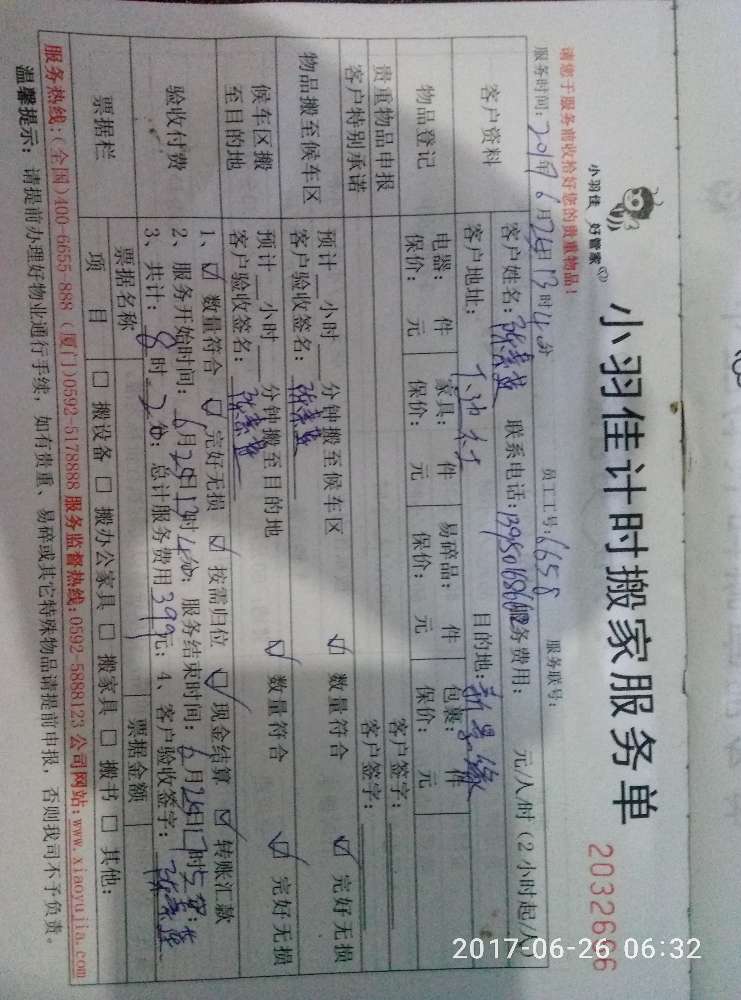 小羽佳 好管家
小羽佳计时搬家服务单
2032696
请您于服务前收拾好您的贵重物品!
服务时间: 2017年6月24日13时4分 员工工号: 6658 服务联号:
客户资料
客户姓名: 联系电话: 服务费用: 元/人/时(2小时起/人)
客户地址: 目的地: 新景缘
物品登记
电器: 件 家具: 件 易碎品: 件 包裹: 件
保价: 元 保价: 元 保价: 元 保价: 元
贵重物品申报 客户签字:
客户特别承诺 客户签字:
物品搬至候车区
预计 小时 分钟搬至候车区 ☑ 数量符合 ☑ 完好无损
客户验收签名:
候车区搬至目的地
预计 小时 分钟搬至目的地 ☑ 数量符合 ☑ 完好无损
客户验收签名:
验收付费
1、☑ 数量符合 ☑ 完好无损 ☑ 按需归位 ☑ 现金结算 ☑ 转账汇款
2、服务开始时间: 6月24日13时4分; 服务结束时间: 6月24日17时 分;
3、共计: 8时2分; 总计服务费用399元; 4、客户验收签字:
票据栏
票据名称 票据金额
项目 □ 搬设备 □ 搬办公家具 □ 搬家具 □ 搬书 □ 其他:
服务热线:(全国)400-6655-888 (厦门)0592-5178888 服务监督热线:0592-5888123 公司网站:www.xiaoyujia.com
温馨提示: 请提前办理好物业通行手续, 如有贵重、易碎或其它特殊物品请提前申报, 否则我司不予负责。
2017-06-26 06:32